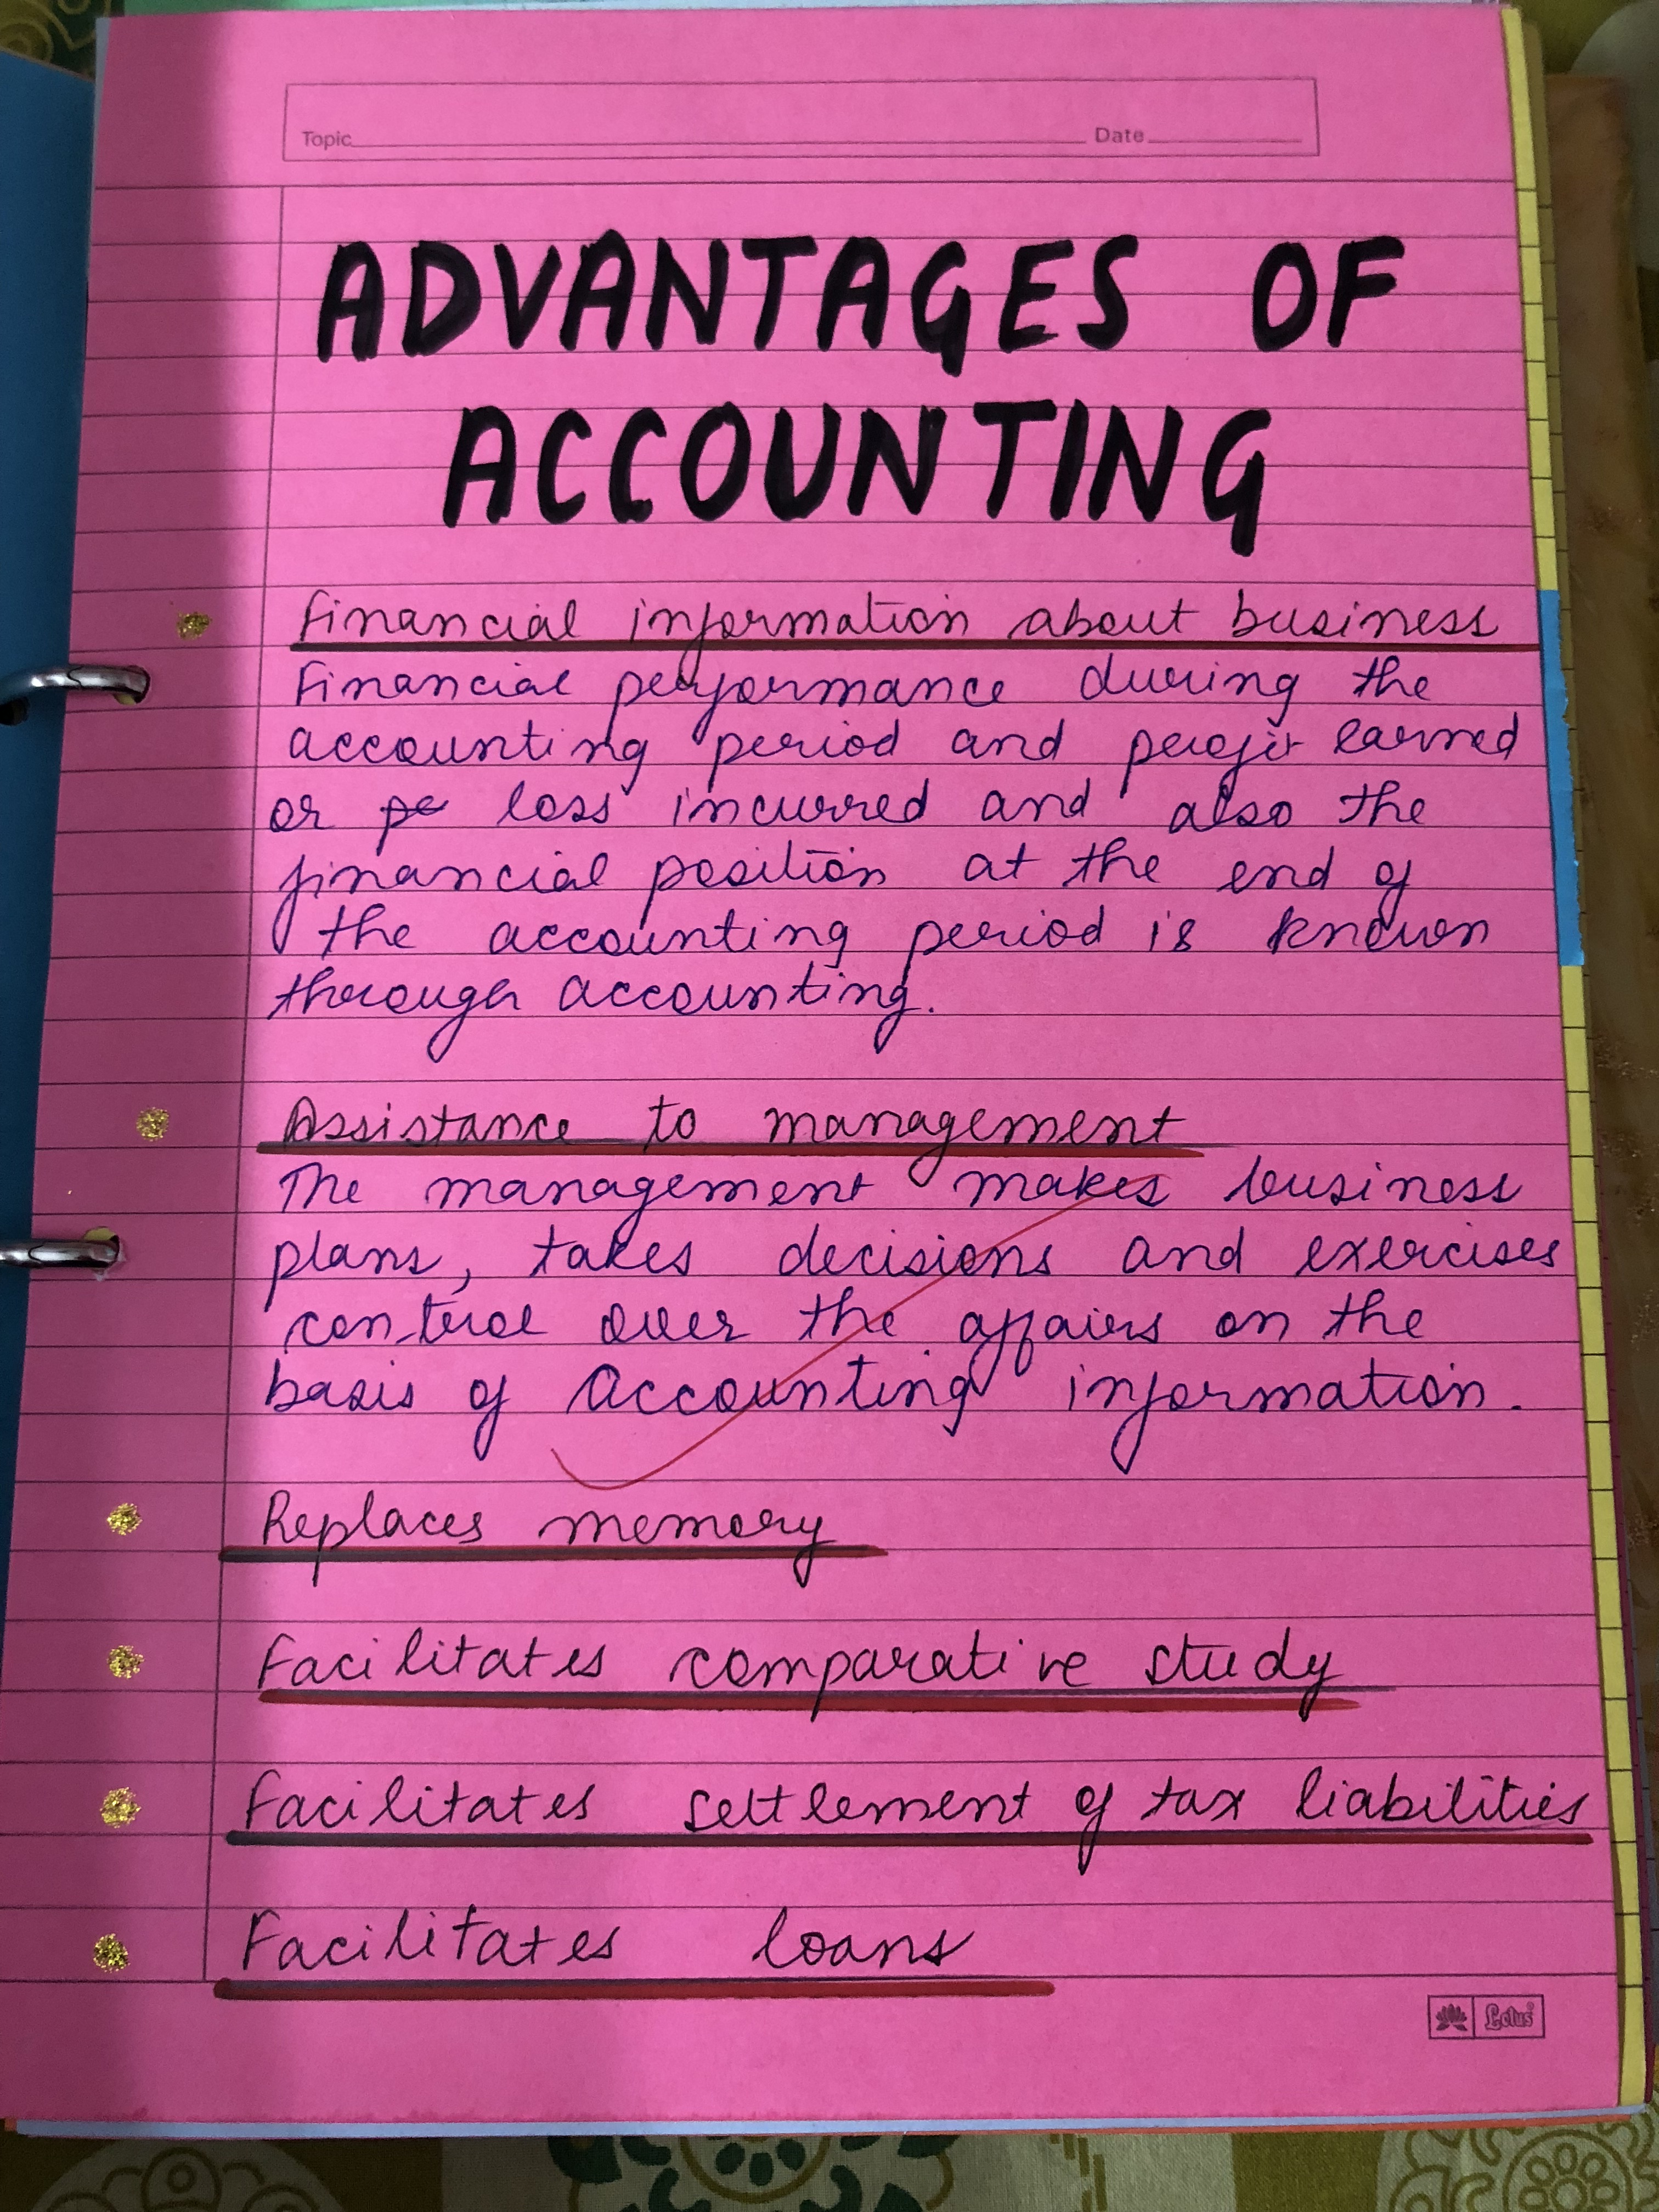 Topic Date
ADVANTAGES OF
ACCOUNTING
Financial information about business
Financial performance during the
accounting period and profit earned
or pe loss incurred and also the
financial position at the end of
the accounting period is known
through accounting.
Assistance to management
The management makes business
plans, takes decisions and exercises
control over the affairs on the
basis of Accounting information.
Replaces memory
Facilitates comparative study
Facilitates settlement of tax liabilities
Facilitates loans
Lotus